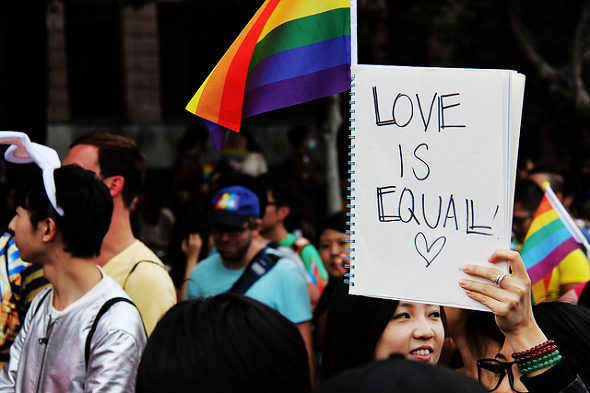 LOVE
IS
EQUAL